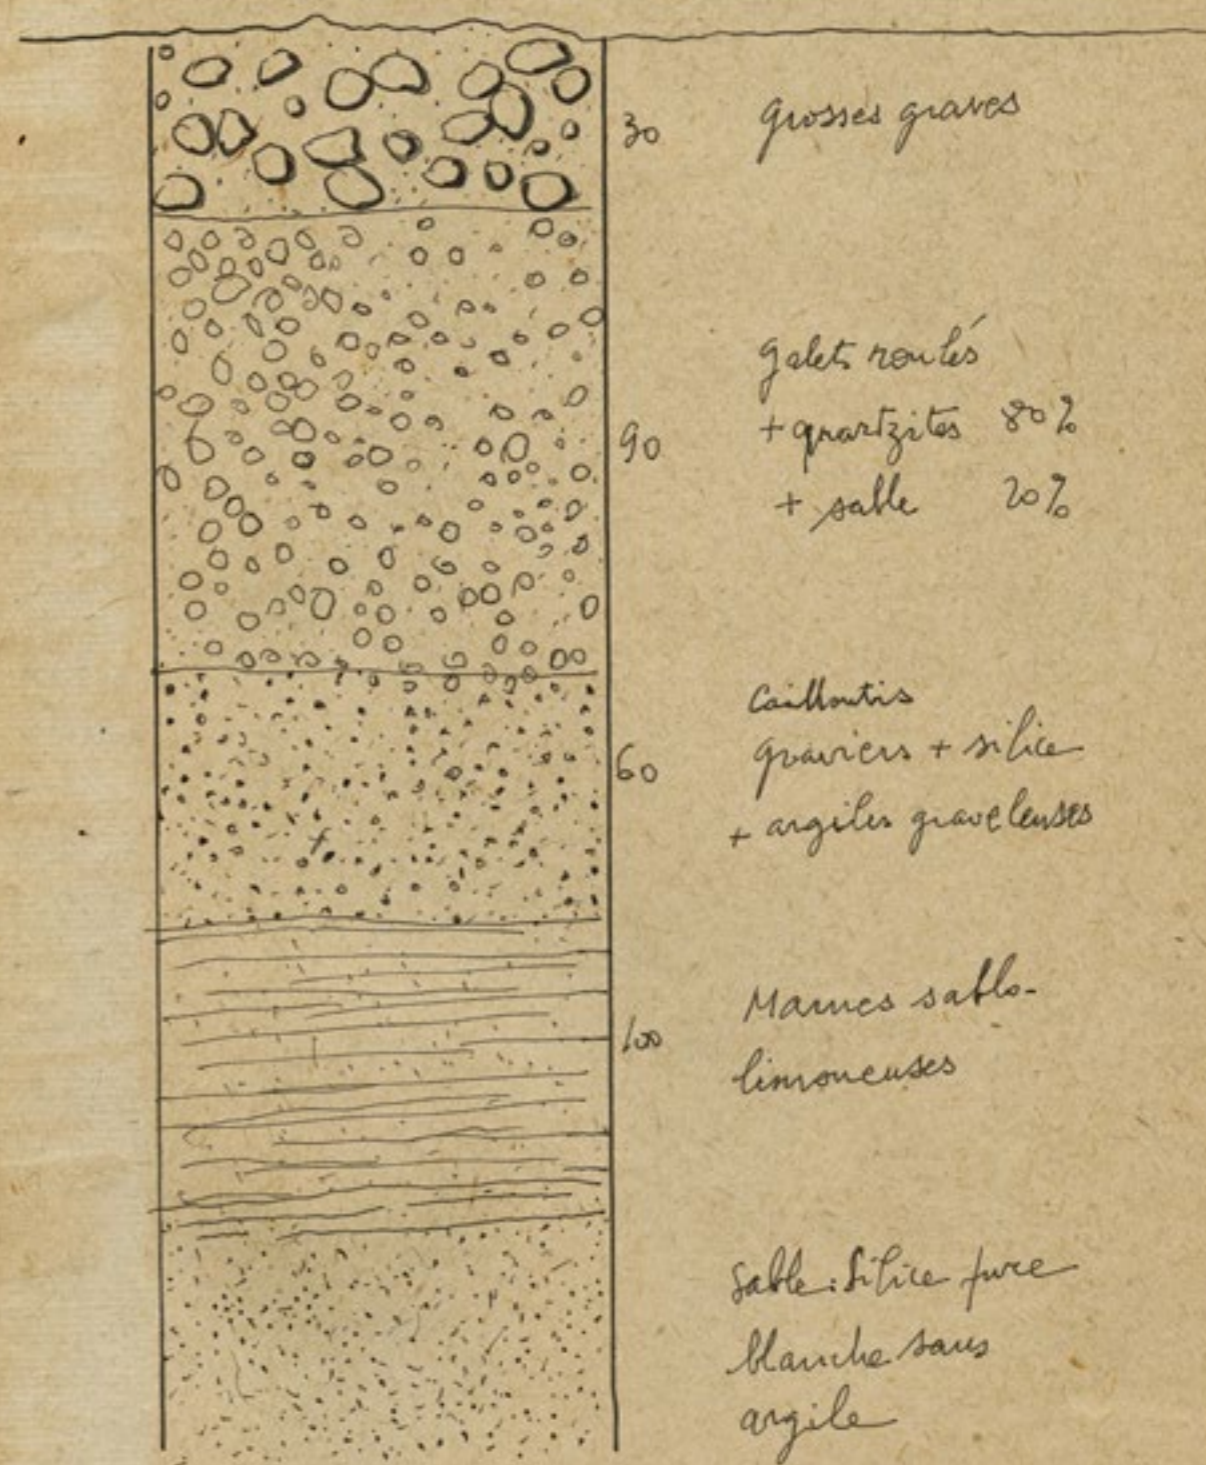 30 Grosses graves
Galets roulés
90 + quartzites 80%
+ sable 20%
Cailloutis
60 graviers + silice
+ argiles graveleuses
Marnes sablo-
100
limoneuses
Sable : Silice pure
blanche sans
argile